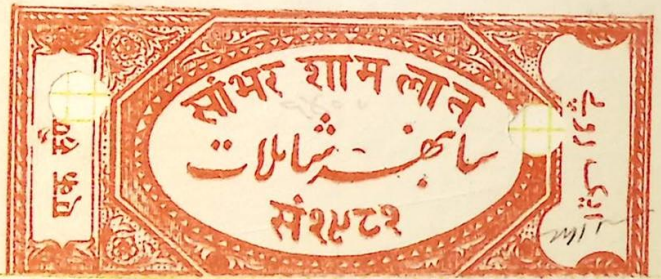 सांभर शामलात
سانبھر شاملات
सं१९८१
एक रु
ایک روپیہ